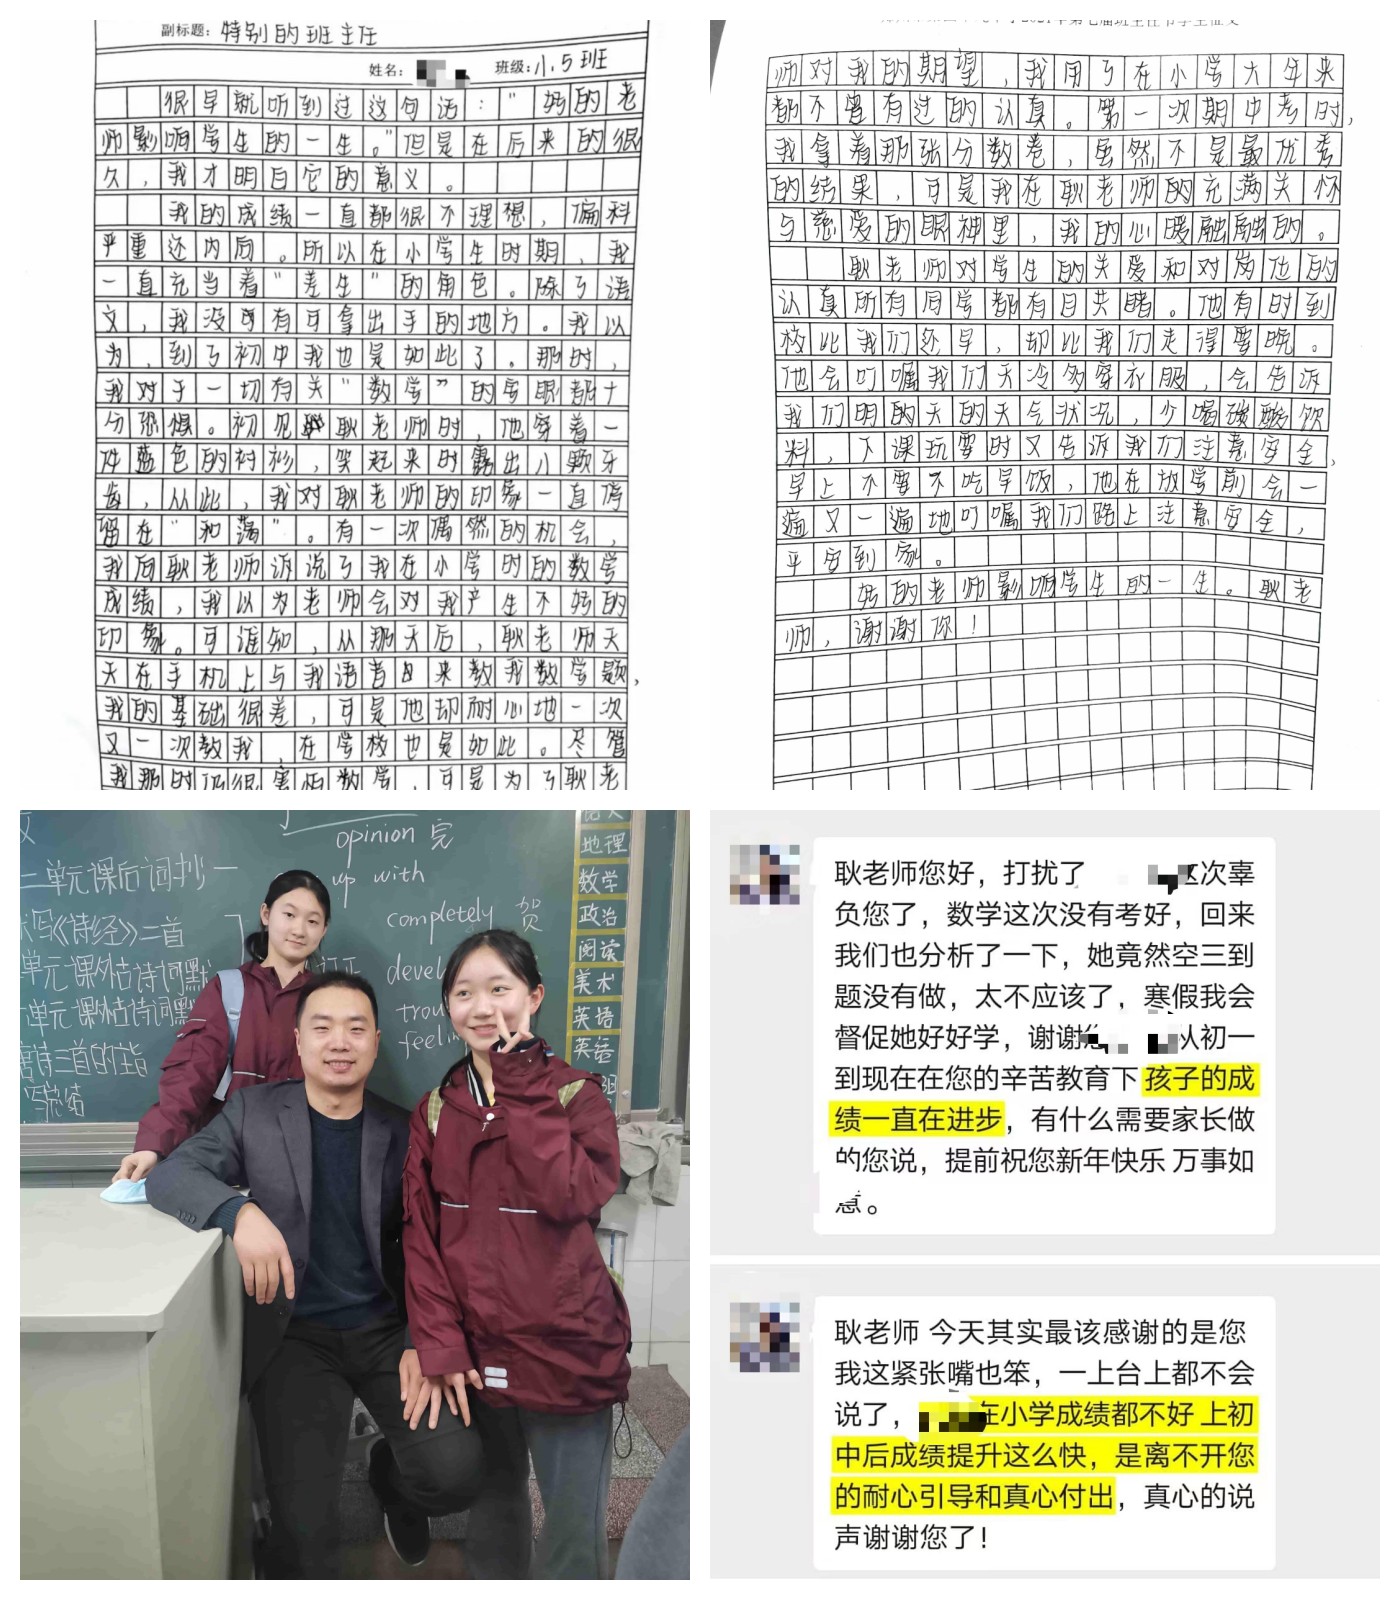 副标题：特别的班主任
姓名： 班级：八.5班
很早就听到过这句话："好的老
师影响学生的一生。"但是在后来的很
久，我才明白它的意义。
我的成绩一直都很不理想，偏科
严重还内向。所以在小学生时期，我
一直充当着"差生"的角色。除了语
文，我没有可拿出手的地方。我以
为，到了初中我也是如此了。那时，
我对于一切有关"数学"的字眼都十
分恐惧。初见耿老师时，他穿着一
件蓝色的衬衫，笑起来时露出八颗牙
齿，从此，我对耿老师的印象一直停
留在"和蔼"。有一次偶然的机会，
我向耿老师诉说了我在小学时的数学
成绩，我以为老师会对我产生不好的
印象。可谁知，从那天后，耿老师天
天在手机上与我语音来教我数学题，
我的基础很差，可是他却耐心地一次
又一次教我，在学校也是如此。尽管
我那时仍很害怕数学，可是为了耿老
师对我的期望，我用了在小学六年来
都不曾有过的认真。第一次期中考时，
我拿着那张分数卷，虽然不是最优秀
的结果，可是我在耿老师的充满关怀
与慈爱的眼神里，我的心暖融融的。
耿老师对学生的关爱和对岗位的
认真所有同学都有目共睹。他有时到
校比我们还早，却比我们走得要晚。
他会叮嘱我们天冷多穿衣服，会告诉
我们明的天的天气状况，少喝碳酸饮
料，下课玩耍时又告诉我们注意安全，
早上不要不吃早饭，他在放学前会一
遍又一遍地叮嘱我们路上注意安全，
平安到家。
好的老师影响学生的一生。耿老
师，谢谢你！
二单元课后词抄一
默写《诗经》二首
单元课外古诗词默
六单元课外古诗词默
唐诗三首的主旨
写总结
opinion 完
up with
completely 贺
devel
trou
feel
地理
数学
政治
阅读
美术
英语
英语
耿老师您好，打扰了 这次辜
负您了，数学这次没有考好，回来
我们也分析了一下，她竟然空三到
题没有做，太不应该了，寒假我会
督促她好好学，谢谢您 从初一
到现在在您的辛苦教育下孩子的成
绩一直在进步，有什么需要家长做
的您说，提前祝您新年快乐 万事如
意。
耿老师 今天其实最该感谢的是您
我这紧张嘴也笨，一上台上都不会
说了， 在小学成绩都不好 上初
中后成绩提升这么快，是离不开您
的耐心引导和真心付出，真心的说
声谢谢您了！